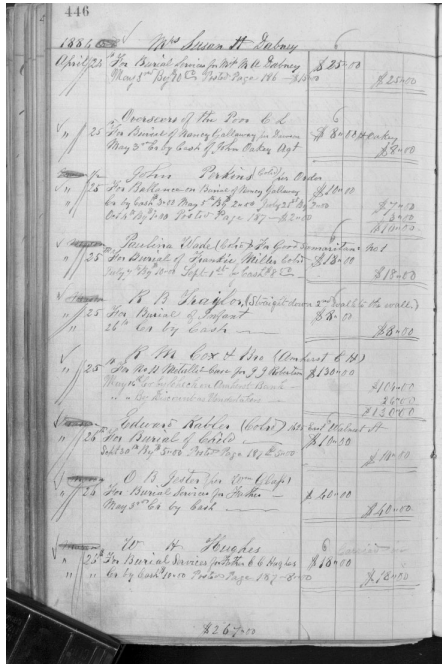 446
1886 Mrs Susan H Dabney
April 24 For Burial Services for M H Dabney $25-00
May 3rd By $10 Posted Page 186 $25-00
Overseers of the Poor C L
" 25 For Burial of Nancy Callaway $8-00
May 3rd Cr by Cash of John Oakey Agt $8-00
John Perkins (Cold) per Order
" 25 For Ballance on Burial of Nancy Callaway $10-00
Cr by Cash 3-00 May 5th By 2-00 July 28th By 2-00 $7-00
Oct 4th By 1-00 Posted Page 187 - $2-00 3-00
$10-00
Paulina Wade (Cold) & The Good Samaritans
" 25 For Burial of Frankie Miller Cold $18-00
July By 10-00 Sept 1st by Cash $8 $18-00
R B Traylor (Straight down 2nd to the wall)
" 25 For Burial of Infant $8-00
" 26th Cr by Cash $8-00
R M Cox & Bro (Amherst C H)
" 25 For No Metallic Case for J J Robertson $130-00
May Cr by Check on Bank $104-00
" " By Discount on 26-00
$130-00
Edward Kabler (Cold) Walnut St
" 26th For Burial of Child $10-00
Sept 20th By 5-00 Posted Page 187 5-00 $10-00
O B Jeter for
" 26 For Burial Services for Father $40-00
May 3rd Cr by Cash $40-00
W H Hughes
" 25th For Burial Services for Father C C Hughes $18-00
" " Cr by Cash 10-00 Posted Page 187 - 8-00 $18-00
$267-00